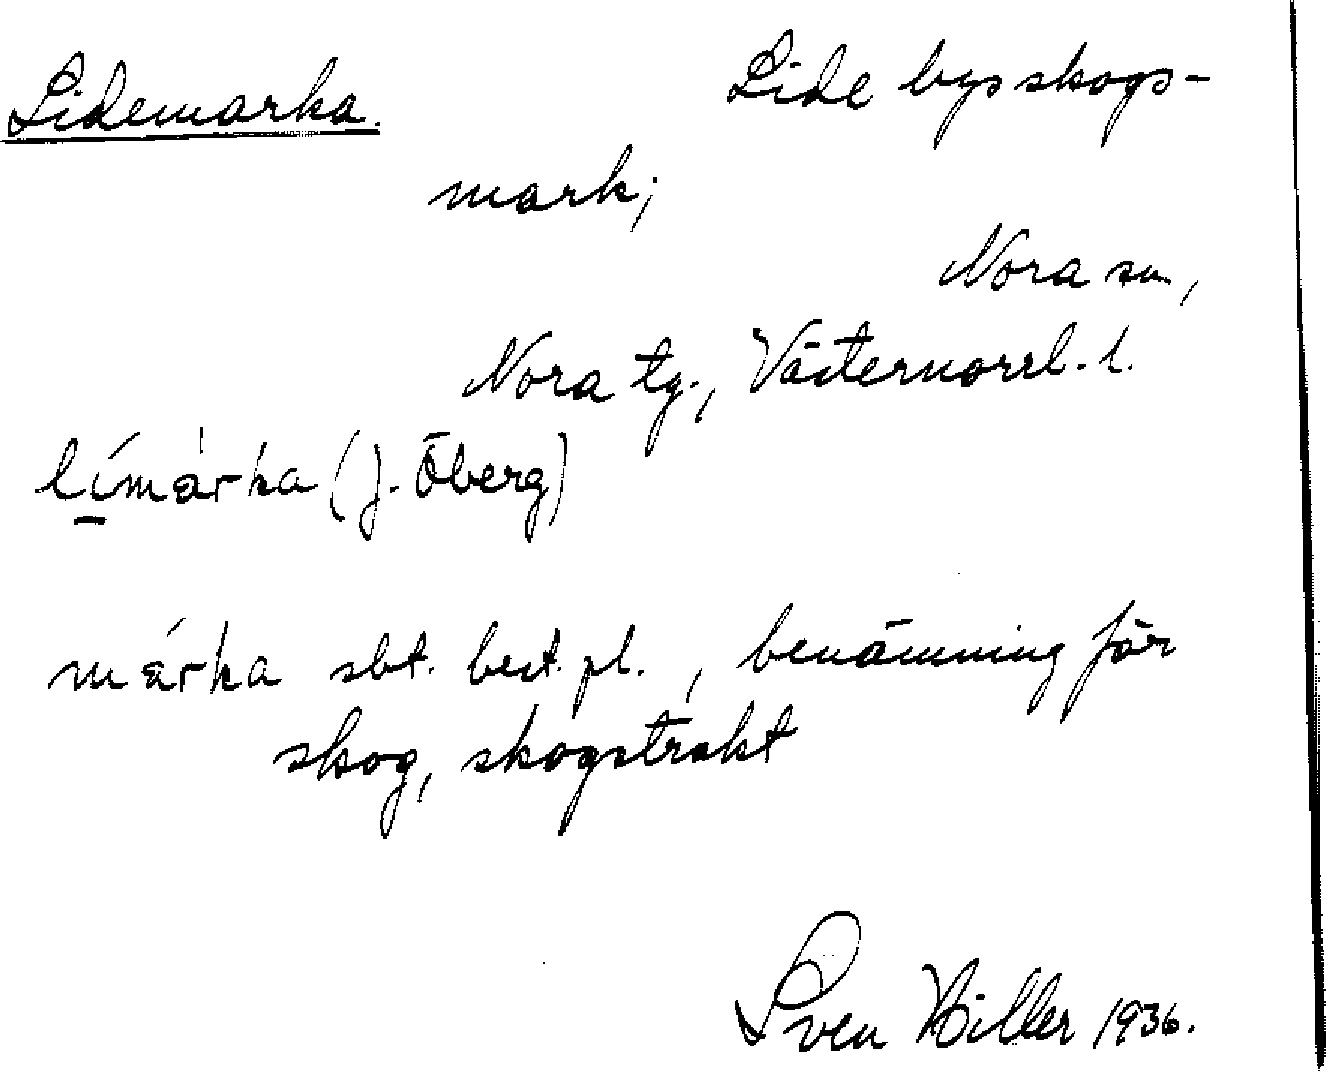 Lidemarka.
Lide bys skogs-
mark;
Nora sn,
Nora tg., Västernorrl. l.
límárka (J. Öberg)
márka sbt. best. pl., benämning för
skog, skogstrakt
Sven Hiller 1936.